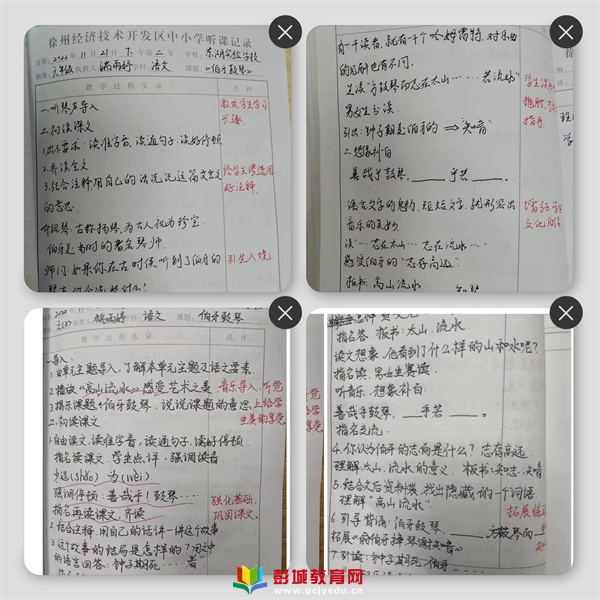 徐州经济技术开发区中小学听课记录
日期:2022年11月21日 第二节 学校:东湖实验学校
六年级 执教人:满雨婷 学科:语文 课题:《伯牙鼓琴》
教学过程实录 点评
一.听琴声导入
激发学生学习兴趣
二.初读课文
1.出示要求:读准字音,读通句子,读好停顿
2.齐读全文
3.结合注释用自己的话说说这篇文言文
的意思.
给学生渗透用好注释.
伯牙是当时的著名琴师.
师问:如果你在古时候听到了伯牙的
引生入境
有一千读者,就有一千个哈姆雷特,对乐曲
的见解也有不同.
男女生分读.
引出:钟子期是伯牙的 ⇒"知音"
二.想象补白
善哉乎鼓琴,____乎若____。
读出文字的魅力,短短文字,就形容出
音乐的美妙
读"…志在太山…志在流水…"
感受伯牙的"志存高远"
板书:高山流水
语文 课题: 伯牙鼓琴
教学过程实录 点评
一.导入.
1.由单元主题导入,了解本单元主题及语文要素
2.播放《高山流水》感受艺术之美
音乐导入,听觉上给学生美的享受
3.揭示课题《伯牙鼓琴》,说说课题的意思.
二.初读课文.
1.自由读文,读准字音,读通句子,读好停顿
指名读课文,学生点评,强调读音
少选(shǎo) 为(wéi)
强调停顿:善哉乎!鼓琴……
指名再读课文,齐读
强化基础,巩固课文.
2.结合注释,用自己的话讲一讲这个故事
3.这个故事的结局是怎样的?用文中
的语言回答:钟子期死……者"
指名答,板书:太山,流水
读文想象,他看到了什么样的山和水呢?
指名读,男女生赛读.
听音乐,想象补白:
善哉乎鼓琴,____乎若____。
指名交流.
4.你认为伯牙的志向是什么?志存高远
理解太山、流水的意义. 板书:知志、知音
5.结合文后资料袋,找出隐藏的一个词语
理解"高山流水"
拓展练习
6.引导背诵:伯牙鼓琴____
7.引读:钟子期死,伯牙____
彭城教育网
www.pcjyedu.cn